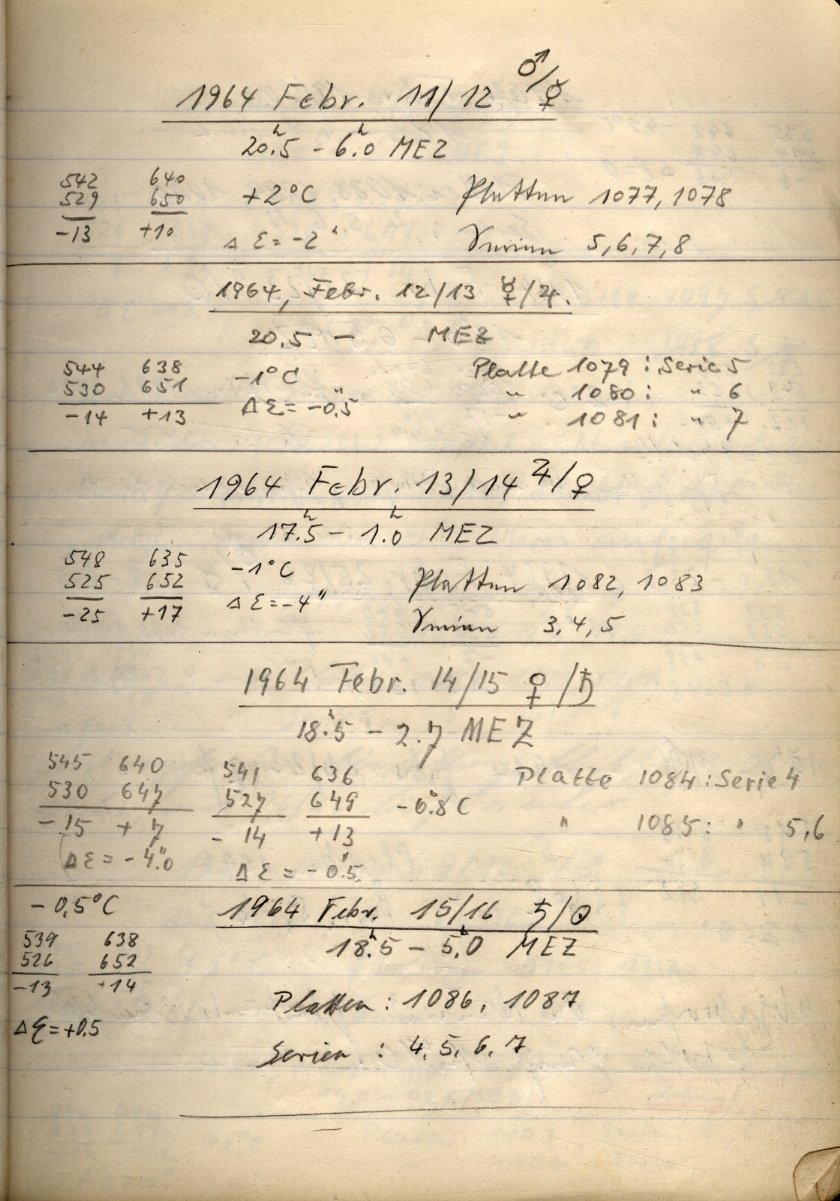 1964 Febr. 11/12 ♂/☿
20.ʰ5 – 6.ʰ0 MEZ
542 640 +2°C Platten 1077, 1078
529 650
-13 +10 Δ ε = -2" Serien 5,6,7,8
1964, Febr. 12/13 ☿/♃.
20.5 – MEZ
544 638 -1°C Platte 1079 : Serie 5
530 651 " 1080 : " 6
-14 +13 Δ ε = -0."5 " 1081 : " 7
1964 Febr. 13/14 ♃/♀
17.ʰ5 – 1.ʰ0 MEZ
548 635 -1°C Platten 1082, 1083
525 652
-25 +17 Δ ε = -4" Serien 3,4,5
1964 Febr. 14/15 ♀/♄
18.ʰ5 – 2.7 MEZ
545 640 541 636 Platte 1084 : Serie 4
530 647 527 649 -0.°8 C
-15 +7 -14 +13 " 1085 : " 5,6
Δ ε = -4."0 Δ ε = -0."5
-0,5°C 1964 Febr. 15/16 ♄/☉
18.ʰ5 – 5.ʰ0 MEZ
539 638
526 652
-13 +14
Platten : 1086, 1087
Δ ε = +0.5
Serien : 4, 5, 6, 7